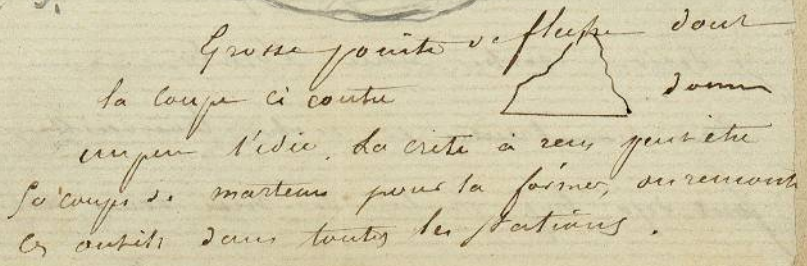 Grosse pointe de flèche dont
la coupe ci contre donne
un peu l'idée. La crête à reçu peut être
50 coups de marteau pour la former, on rencontre
ces outils dans toutes les stations.